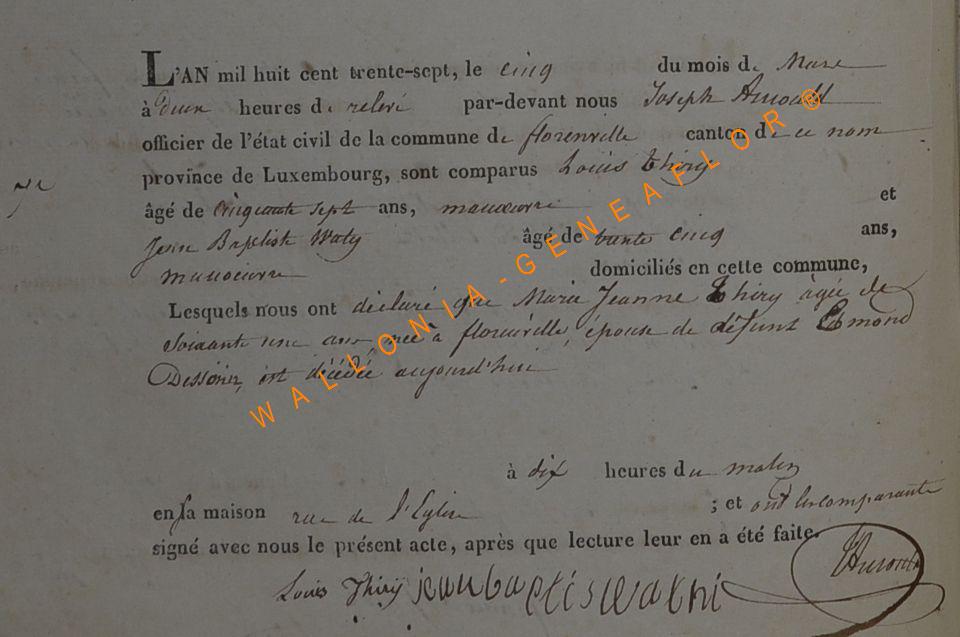 L'AN mil huit cent trente-sept, le cinq du mois de Mars
à deux heures de relevé par-devant nous Joseph Arnould
officier de l'état civil de la commune de florenville canton de ce nom
province de Luxembourg, sont comparus Louis Thiry
âgé de cinquante sept ans, manoeuvre et
Jean Baptiste Waty âgé de trente cinq ans,
manoeuvre domiciliés en cette commune,
Lesquels nous ont déclaré que Marie Jeanne Thiry âgée de
soixante une ans, née à florenville, épouse de défunt Edmond
est décédée aujourd'hui
à dix heures du matin
en sa maison rue de l'Eglise ; et ont les comparants
signé avec nous le présent acte, après que lecture leur en a été faite.
Louis Thiry jean baptis wathi Arnould
WALLONIA-GENEAFLOR®